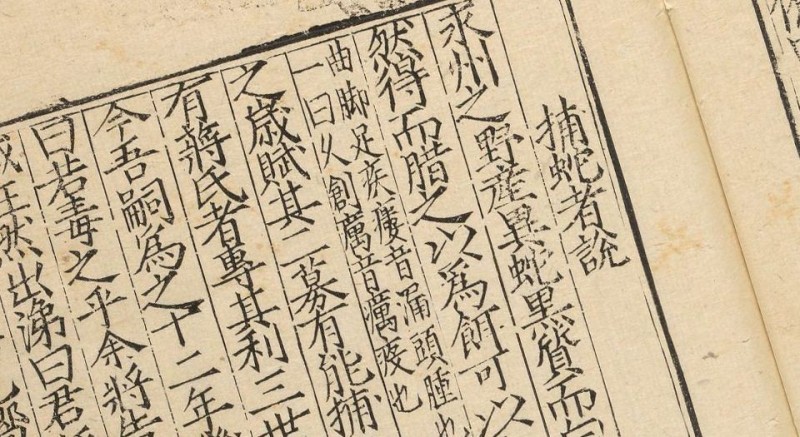 捕蛇者說
永州之野産異蛇黒質而
然得而腊之以爲餌可以
曲脚足疾瘻音漏頭腫也
一曰久創厲音癘疫也
之歳賦其二募有能捕
有蔣氏者專其利三世
今吾嗣爲之十二年
曰若毒之乎余將告
汪然出涕曰君